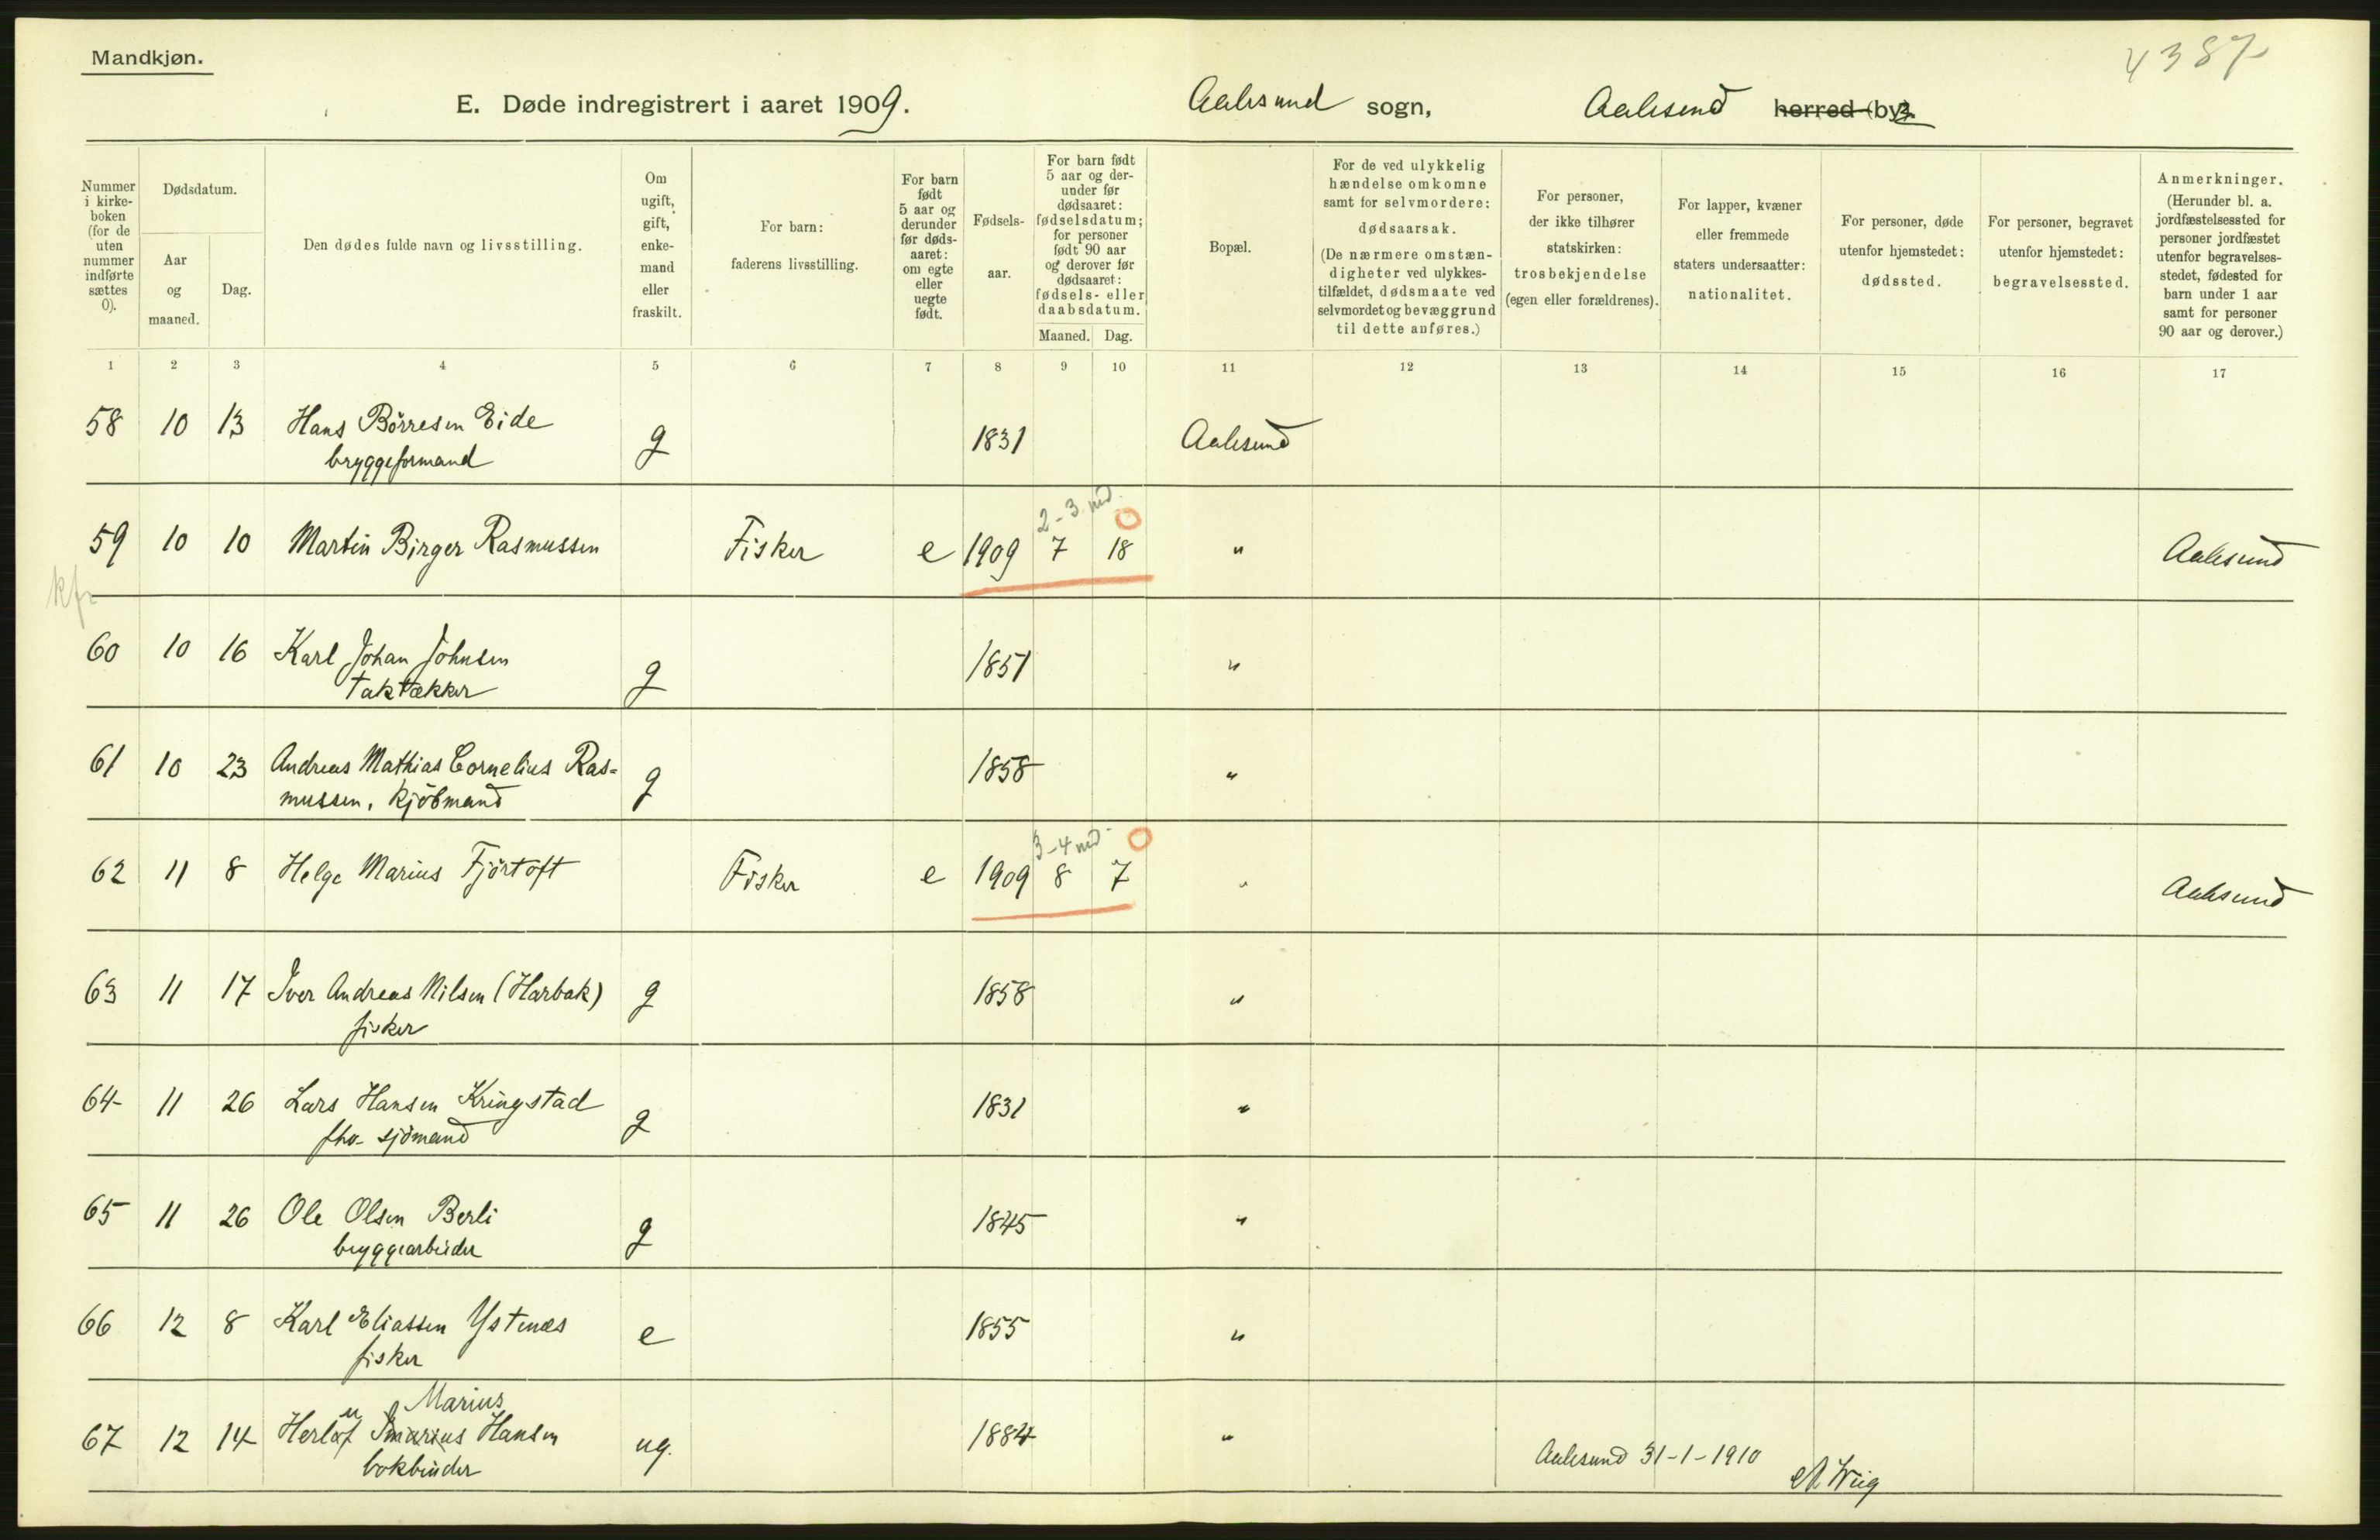 Mandkjøn.
4387
E. Døde indregistrert i aaret 1909.
Aalesund sogn,
Aalesund herred (by).
Nummer i kirke-boken (for de uten nummer indførte sættes 0).
Dødsdatum.
Aar og maaned.
Dag.
Den dødes fulde navn og livsstilling.
Om ugift, gift, enke-mand eller fraskilt.
For barn: faderens livsstilling.
For barn født 5 aar og derunder før døds-aaret: om egte eller uegte født.
Fødsels-aar.
For barn født 5 aar og der-under før dødsaaret: fødselsdatum; for personer født 90 aar og derover før dødsaaret: fødsels- eller daabsdatum.
Maaned.
Dag.
Bopæl.
For de ved ulykkelig hændelse omkomne samt for selvmordere: dødsaarsak. (De nærmere omstæn-digheter ved ulykkes-tilfældet, dødsmaate ved selvmordet og bevæggrund til dette anføres.)
For personer, der ikke tilhører statskirken: trosbekjendelse (egen eller forældrenes).
For lapper, kvæner eller fremmede staters undersaatter: nationalitet.
For personer, døde utenfor hjemstedet: dødssted.
For personer, begravet utenfor hjemstedet: begravelsessted.
Anmerkninger. (Herunder bl. a. jordfæstelsessted for personer jordfæstet utenfor begravelses-stedet, fødested for barn under 1 aar samt for personer 90 aar og derover.)
1 2 3 4 5 6 7 8 9 10 11 12 13 14 15 16 17
58 10 13 Hans Börresen Eide g 1831 Aalesund
bryggeformand
2-3 md. 0
59 10 10 Martin Birger Rasmussen Fisker e 1909 7 18 " Aalesund
60 10 16 Karl Johan Johnsen g 1851 "
taktækker
61 10 23 Andreas Mathias Cornelius Ras= g 1858 "
mussen, kjöbmand
3-4 md. 0
62 11 8 Helge Marius Fjörtoft Fisker e 1909 8 7 " Aalesund
63 11 17 Iver Andreas Nilsen (Harbak) g 1858 "
fisker
64 11 26 Lars Hansen Kringstad g 1831 "
fhv. sjömand
65 11 26 Ole Olsen Berli g 1845 "
bryggearbeider
66 12 8 Karl Eliassen Ystenæs e 1855 "
fisker
Marius
67 12 14 Herluf Hansen ug. 1884 "
bokbinder
Aalesund 31-1-1910
Wiig